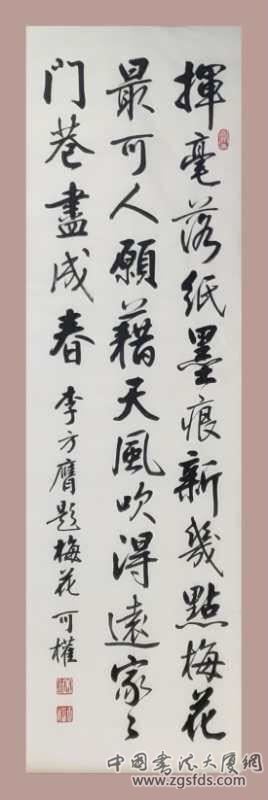 揮毫落紙墨痕新幾點梅花
最可人願藉天風吹得遠家〻
門巷盡成春 李方膺題梅花 可權
中国书法大厦網
www.zgsfds.com